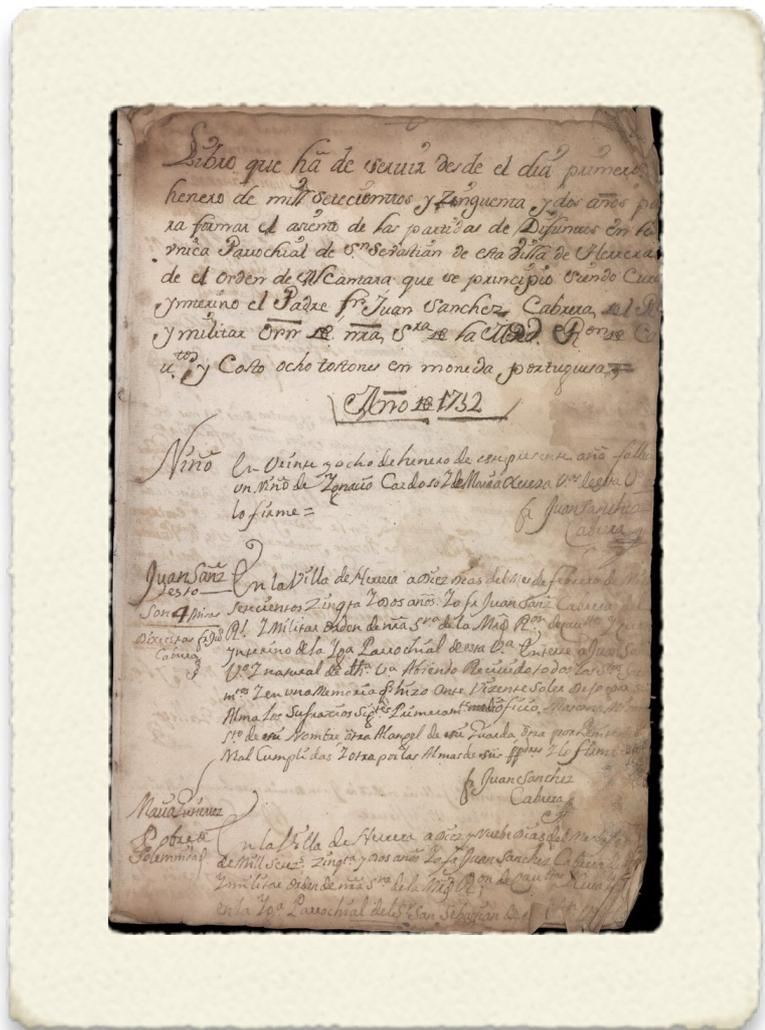 Libro que hã de servir desde el dia primero
henero de mill setecientos y Zinquenta y dos años pa
ra formar el asiento de las partidas de Difuntos en la
vnica Parrochial de Sn Sevastian de esta Villa de Herrera
de el orden de Alcantara que se principio siendo Cura
ynterino el Padre fr Juan Sanchez Cabrera, del R
y militar Orñ de nrã Sra de la Mrd. Ron de Ca
utos y Costo ocho tostones en moneda portuguesa
Año de 1752
Niño
En veinte y ocho de henero de este presente año falle
un Niño de Ygnacio Cardoso Y de Maria Vos de esta Va
lo firme =
fr Juan Sanchez
Cabrera
Juan Sanz
esto
Son 4 Misas
Cabrera
En la Villa de Herrera a Diez dias del Mes de febrero de
Setecientos Zinqta Y dos años. Yo fr Juan Sanz Cabrera
Rl. Y Militar Orden de nrã Sra de la Mrd Ron de
Ynterino de la Yga Parrochial de esta Va Enterre a Juan
Vo Y natural de dha Va Abiendo Recivido todos los Stos
Y en una Memoria q hizo Ante Vizente Soles Dejo por su
Alma los Sufraxios Sigtes Primeramte oficio,
Sto de su Nombre otra Al angel de su Guarda otra por penitencias
Mal Cumplidas Y otra por las Almas de sus Y lo firme
fr Juan Sanchez
Cabrera
Maria
Pobre de
Solemnidad
En la Villa de Herrera a Diez y Nueve Dias del Mes de
de Mill Setez. Zinqta y dos años Yo fr Juan Sanchez Cabrera
Y militar Orden de nrã Sra de la Mrd Ron de Cautos
en la Yga Parrochial del Sr San Sebastian de